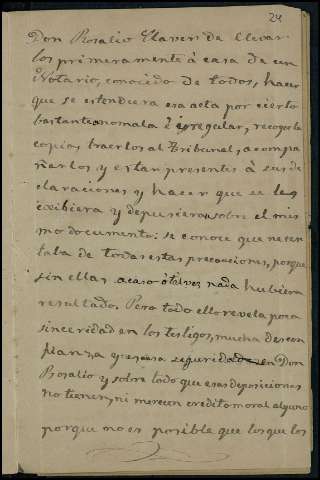 24
Don Rosalio Claver de llevar
los primeramente à casa de un
Notario, conocido de todos, hacer
que se estendiera esa acta por cierto
bastante anomala è irregular, recoger la
copia, traerlos al Tribunal, acompa
ñarlos y estar presentes à sus de
claraciones y hacer que se les
exibiera y depusieran sobre el mis
mo documento: se conoce que necesi
taba de todas estas precauciones, porque
sin ellas acaso ò tal vez nada hubiera
resultado. Pero todo ello revela poca
sinceridad en los testigos, mucha descon
fianza y escasa seguridad en Don
Rosalio y sobre todo que esas deposiciones
no tienen, ni merecen credito moral alguno
porque no es posible que los que los